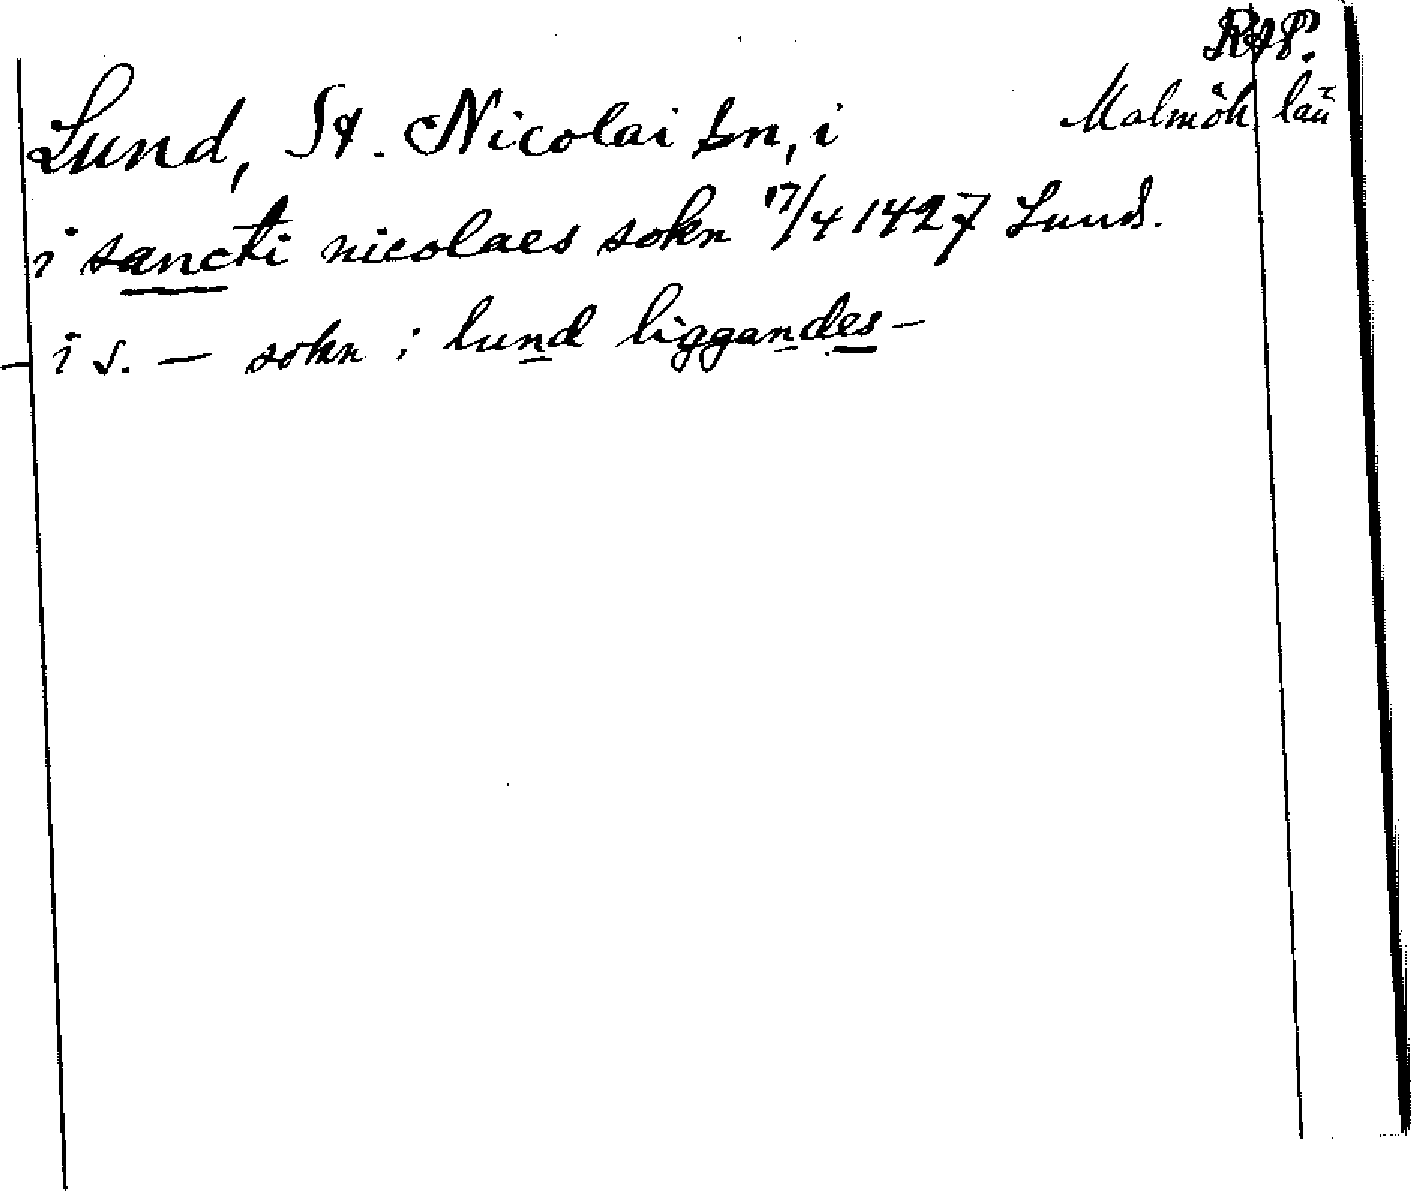 RAP.
Malmöh län
Lund, St. Nicolai sn, i
i sancti nicolaes sokn 17/4 1427 Lund.
i s. — sokn i lund liggandes –